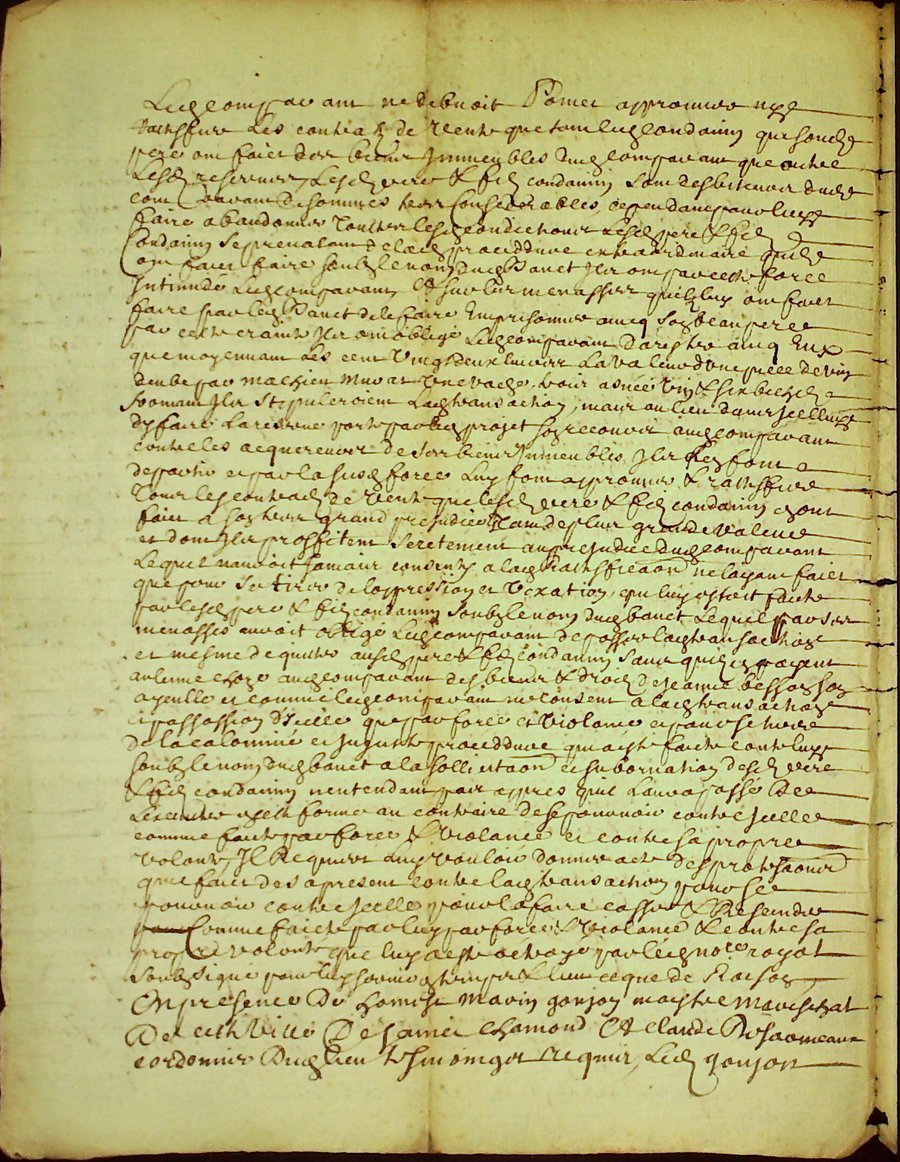 Ledg comparant ne debvoit Poinct approuver ny
rattiffier Les contractz de vente que tant ledg condamin que sondg
pere ont faict des biens Immeubles dudg comparant que oultre
Lesdg reserves, Lesdg pere & filz condamin sont desbiteurs dudg
comparant de sommes tres considerables, cependant pour luy
faire abandonner touttes lesdg conditions Lesdg pere & filz
Condamin se prenalant de lad procedure extraordinaire quilz
ont faict faire soubz le nom dudg Banet Ilz ont par ceste force
Intimidé Ledg comparant Et sur les menasses quilz luy ont faict
faire par ledg Banet de le faire Emprisonner avecq son beau pere
par ceste crainte Ilz ont obligé Ledg comparant daccepter avecq Eux
que moyennant Les cent vingt deux livres La valeur d'une piece de vin
deube par Mathieu Murat Une vache, trois asnées vin & six bichetz
fromant Ilz stipuleroient Ladg transaction, mais au lieu dans Icelle
dy faire La reserve porté par ledg projet son recouvrs audg comparant
contre les acquereurs de ses biens Immeubles Ilz Len font
despartir et par la susdg force Luy font approuver & rattiffier
Tous les contractz de vente que lesdg pere & filz condamin en ont
faict a son tres grand prejudice estant de plus grande valeur
et dont Ilz proffitent secretement au prejudice dudg comparant
Lequel nauroit jamais consenty a ladg Rattiffication ne layant faict
que pour se tirer de loppression et Vexation, qui luy estoit faicte
par lesdg pere & filz condamin soubz le nom dudg banet Lequel par ses
menasses auroit obligé Ledg comparant de passer ladg transaction
et mesme de quitter ausdg pere & filz condamin sans quilz en payent
aulcune chose audg comparant des biens & droictz de Jeanne besson son
ayeulle et comme ledg comparant ne consent a ladg transaction
et passassion d'Icelle que par force et violance et pour se tirer
de la calomnie et Injuste procedure qui a esté faicte contre luy
soubz le nom dudg banet a la sollicitation et subornation desdg pere
& filz condamin nentendant pas appres que Laura passé De
Lexecuter ny sa forme au contraire de se pourvoir contre Icelle
comme faicte par force & violance et contre sa propre
volonté, Il Requiert Luy vouloir donner acte des protestations
quil faict des a present contre ladg transaction pour se
pourvoir contre Icelle pour la faire casser & Rescinder
Comme faicte par luy par force & violance & contre sa
propre volonte que luy a esté octroyé par le dg no.re royal
soubsigné pour luy servir en temps & lieu ce que de Raison
En presence de honneste Marin goujon maistre mareschal
De ceste Ville De Saint Chamond Et claude Deshormeaux
cordonnier Dudg lieu tesmoingz requis, Ledg goujon